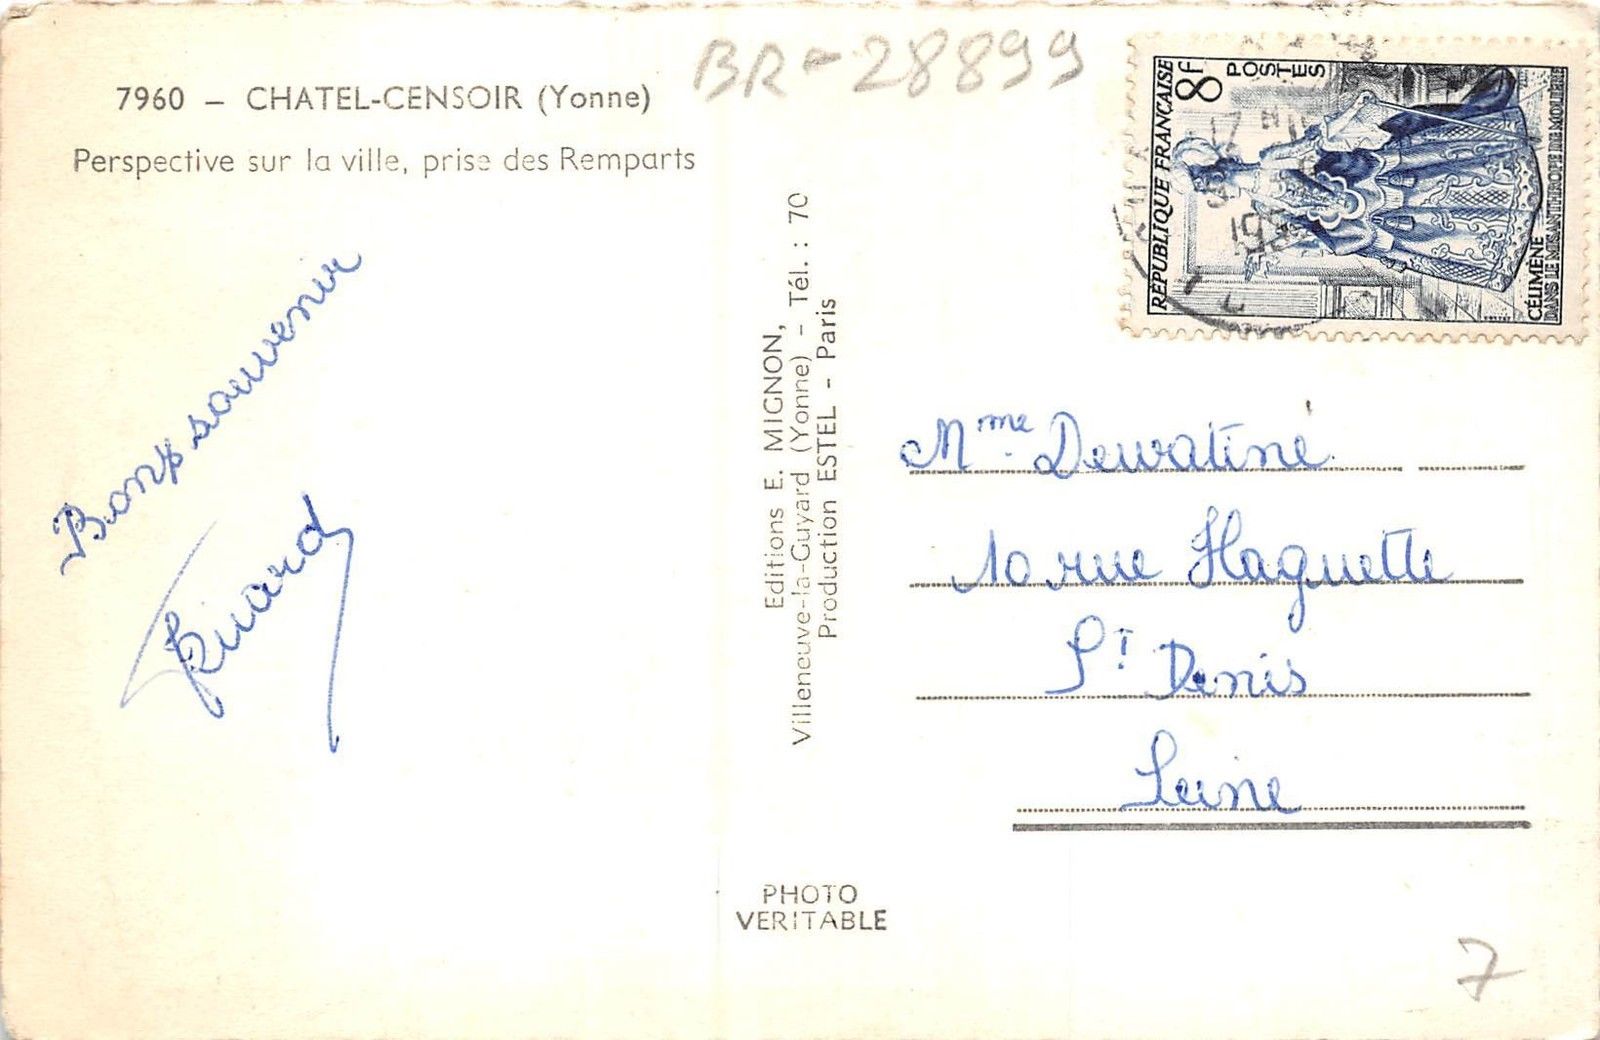 BR-28899
7960 — CHATEL-CENSOIR (Yonne)
Perspective sur la ville, prise des Remparts
Bons souvenir
Editions E. MIGNON,
Villeneuve-la-Guyard (Yonne) - Tél. : 70
Production ESTEL - Paris
RÉPUBLIQUE FRANÇAISE
8F
POSTES
CÉLIMÈNE
DANS LE MISANTHROPE DE MOLIÈRE
17 H
195
Mme Dewatine
10 rue Haguette
St Denis
Seine
PHOTO
VERITABLE
7